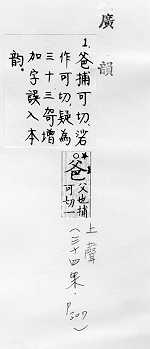 廣韻
1.爸捕可切,若
作可切,疑為
三十三哿增
加字誤入本
韻。
爸父也捕
可切一
上聲
(三十四果.P307)